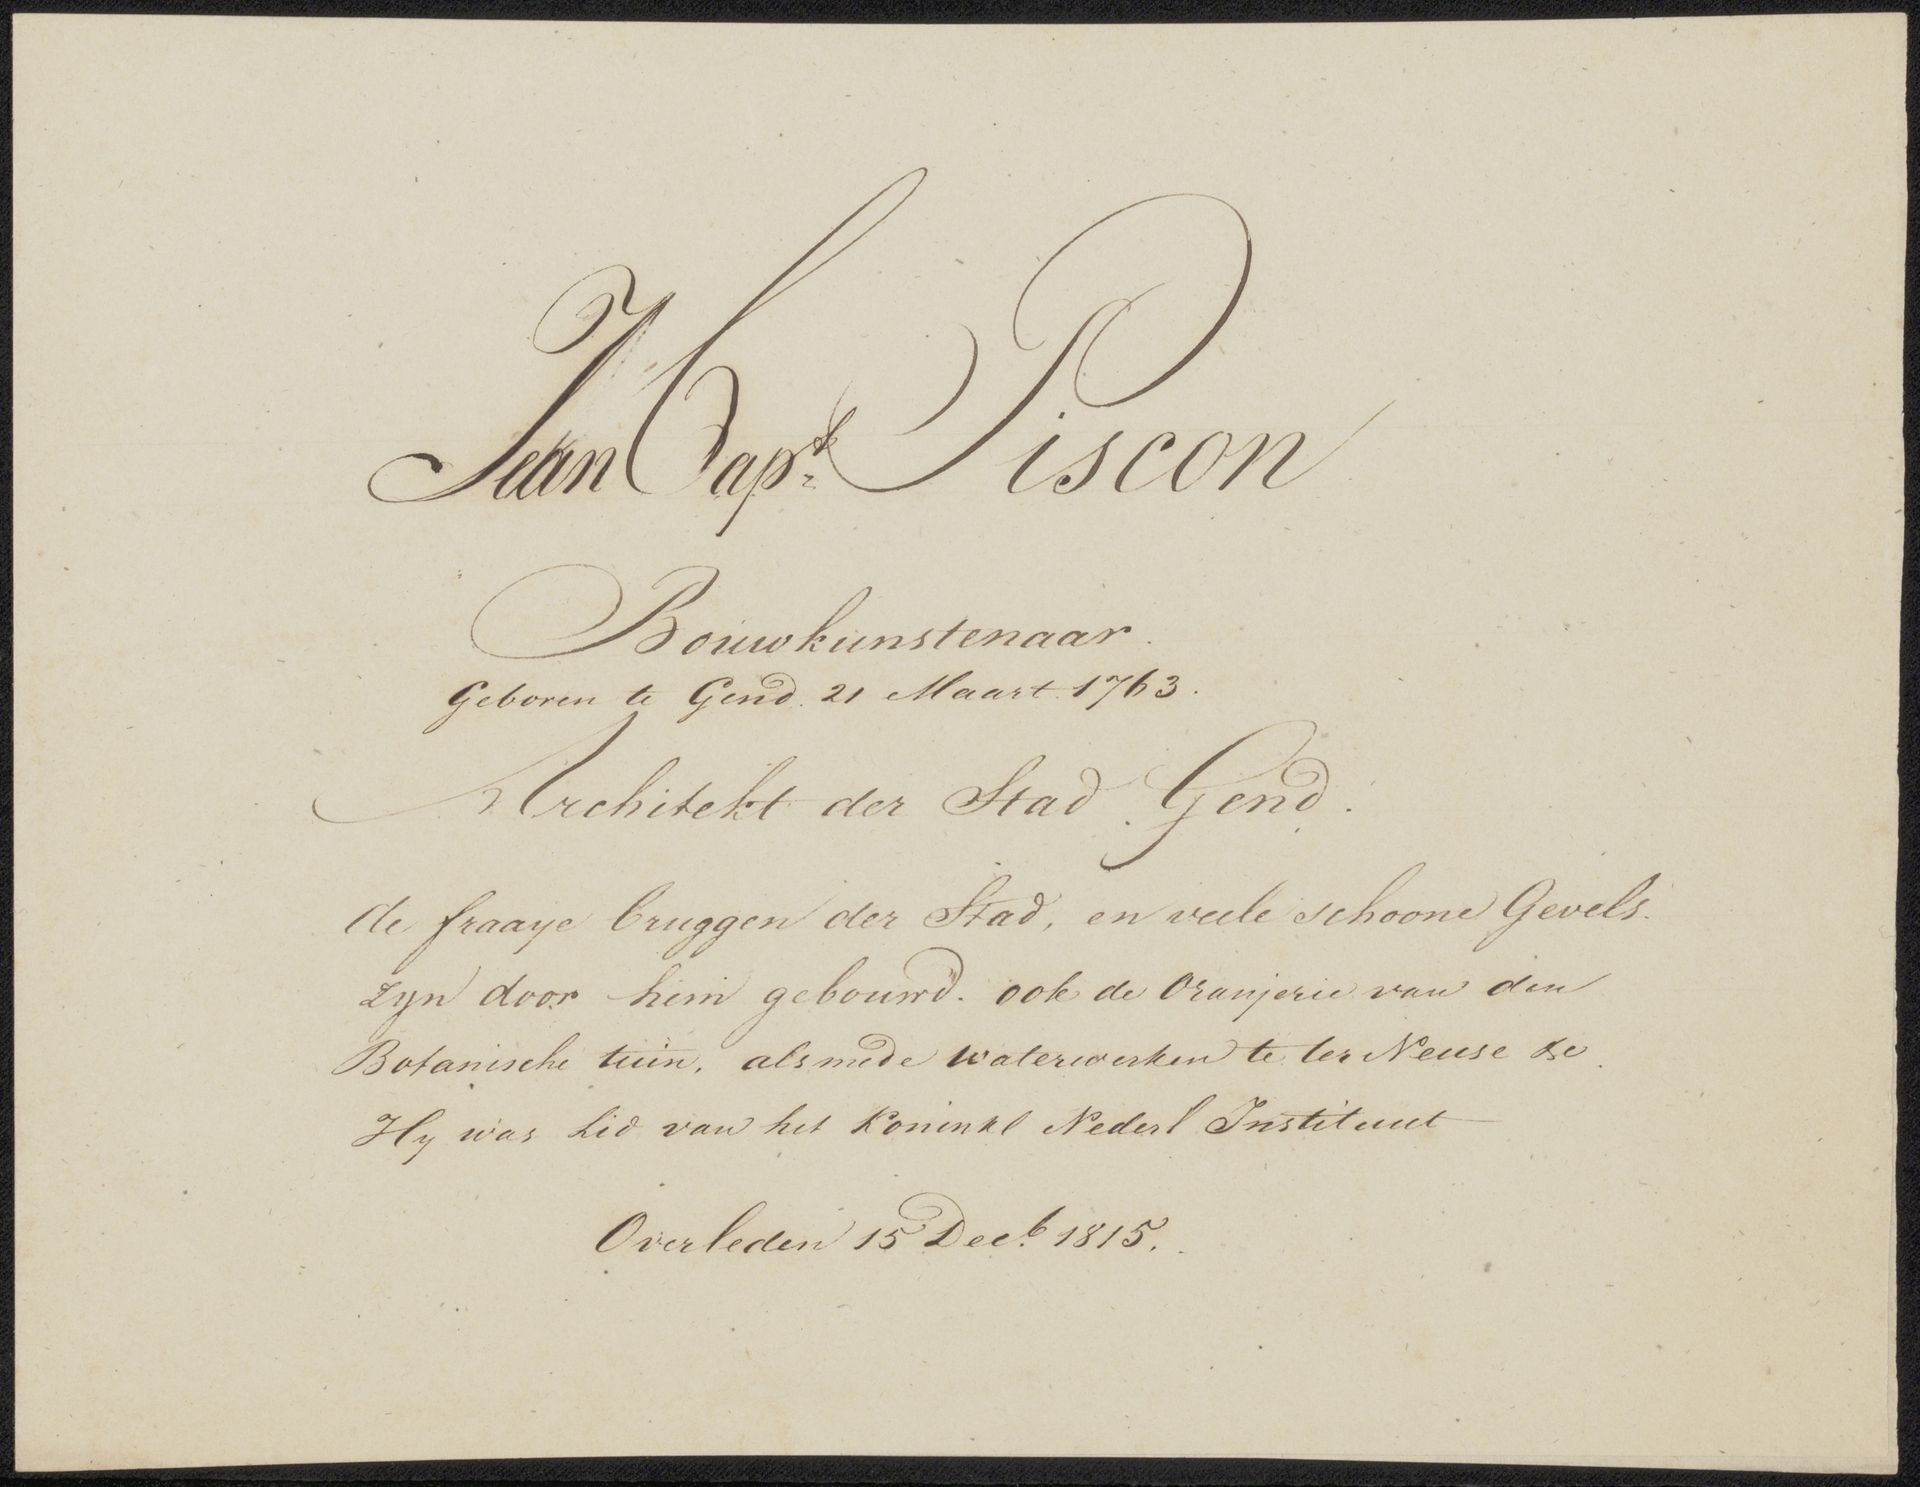 Jean Bapt. Piscon
Bouwkunstenaar.
Geboren te Gend. 21 Maart 1763.
Architekt der Stad Gend.
de fraaye bruggen der Stad, en veele schoone Gevels.
zyn door hem gebouwd. ook de Oranjerie van den
Botanische tuin, alsmede waterwerken te ter Neuse &c.
Hy was Lid van het Koninkl Nederl Instituut
Overleden 15 Decb. 1815.